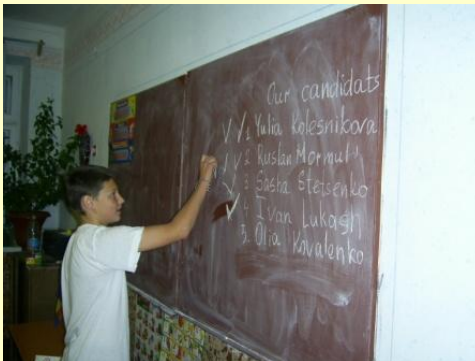 Our candidats
V V 1. Yulia Kolesnikova
V V 2. Ruslan Mormul
V 3. Sasha Stetsenko
V 4. Ivan Lukash
5. Olia Kovalenko